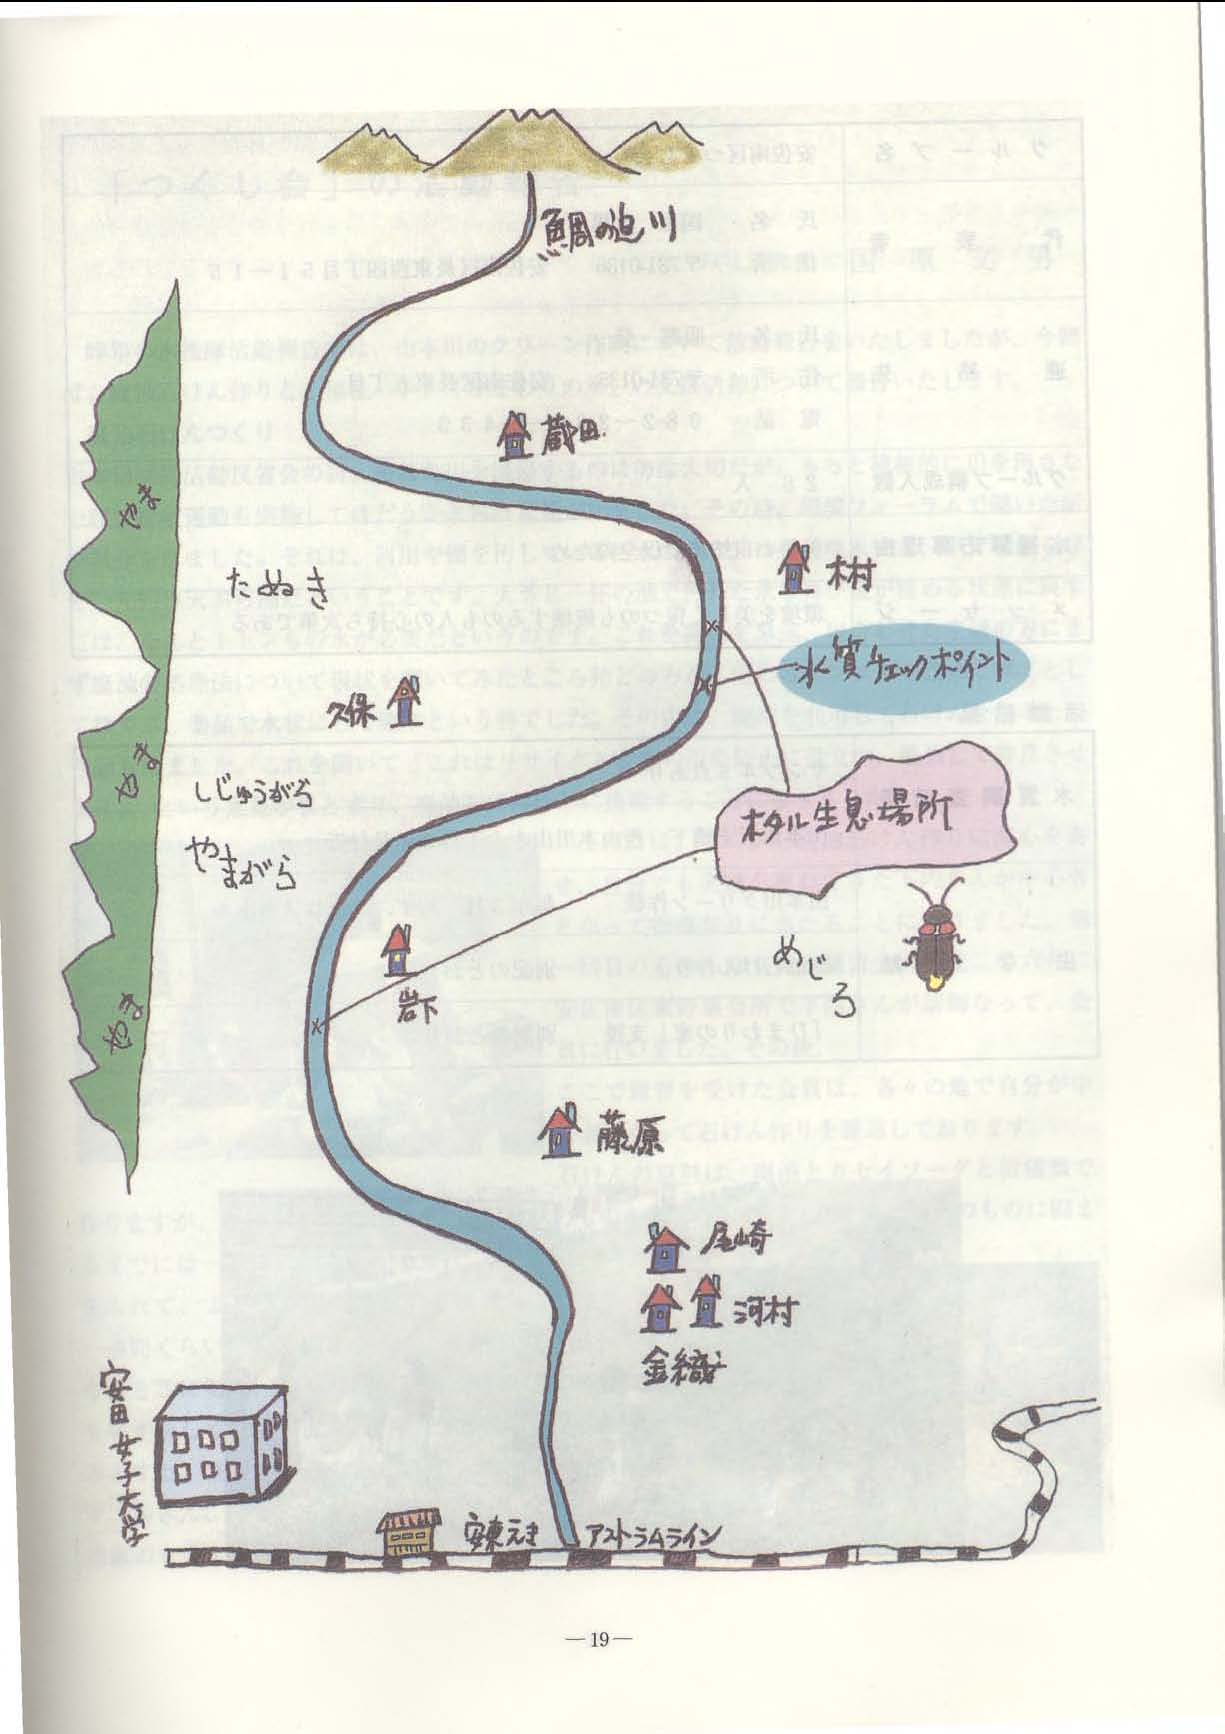 鯛の迫川
蔵田
やま
木村
たぬき
水質チェックポイント
久保
やま
しじゅうがら
ホタル生息場所
やまがら
めじろ
岩下
やま
藤原
尾崎
河村
金織
安田女子大学
安東えき
アストラムライン
—19—